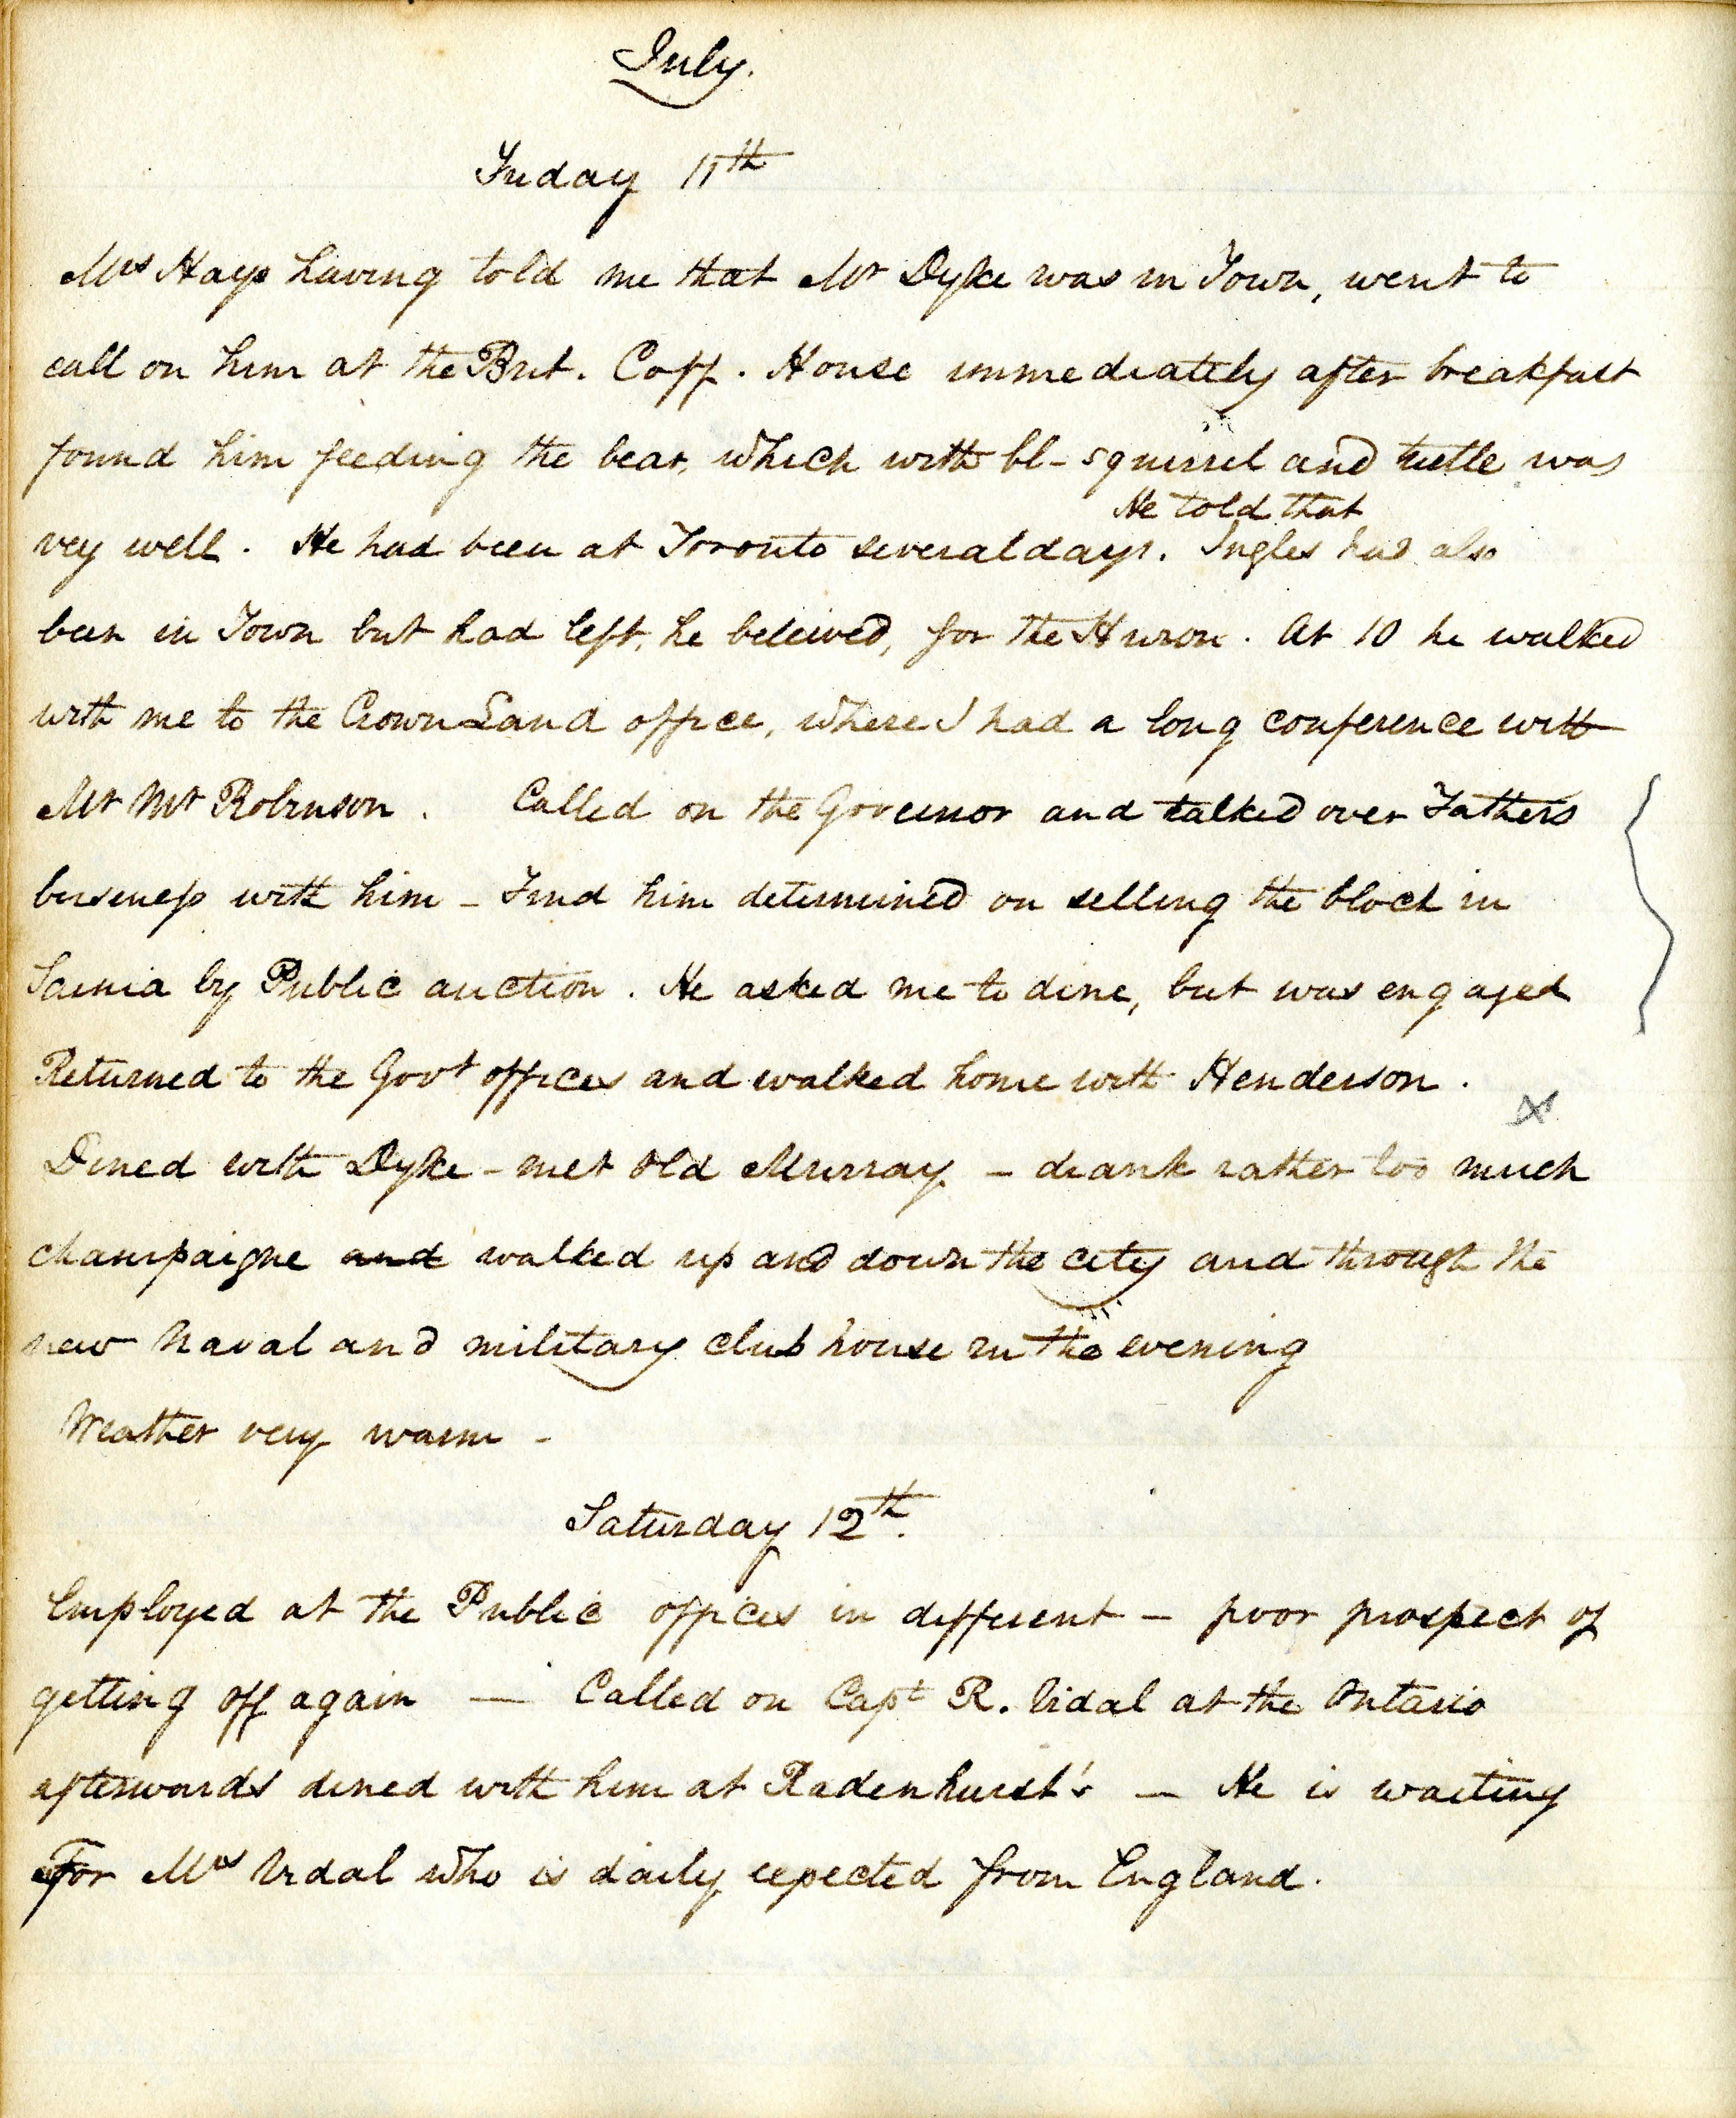 July.
Friday 11th
Mrs Hays having told me that Mr Dyke was in Town, went to
call on him at the Brit. Coff. House immediately after breakfast
found him feeding the bear, which with bl- squirrel and turtle was
He told that
very well. He had been at Toronto several days. Ingles had also
been in Town but had left, he beleived, for the Huron. At 10 he walked
with me to the Crown Land office, where I had a long conference with
Mr Mr Robinson. Called on the Governor and talked over Fathers
business with him - Find him determined on selling the block in
Sarnia by Public auction. He asked me to dine, but was engaged
Returned to the Govt offices and walked home with Henderson.
Dined with Dyke - met old Murray - drank rather too much
champaigne and walked up and down the city and through the
new Naval and military club house in the evening
Weather very warm -
Saturday 12th.
Employed at the Public offices in different - poor prospect of
getting off again - Called on Capt R. Vidal at the Ontario
afterwards dined with him at Radenhurst's - He is waiting
For Mrs Vidal who is daily expected from England.